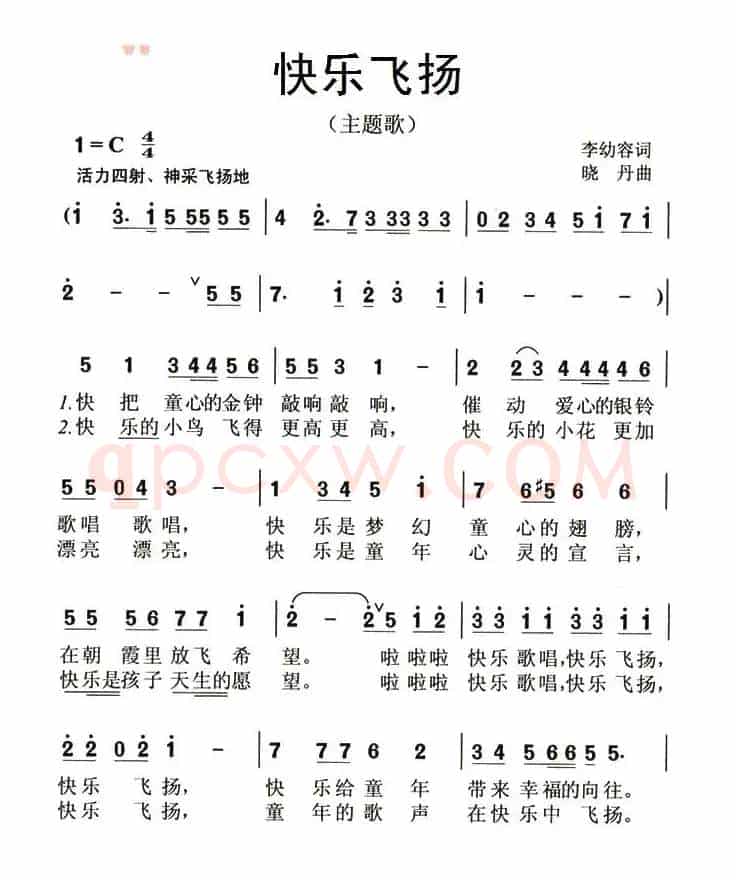 快乐飞扬
（主题歌）
1=C 4/4
李幼容词
活力四射、神采飞扬地
晓 丹曲
(i 3. i 5 55 5 5 | 4 2. 7 3 33 3 3 | 0 2 3 4 5 i 7 i |
2 - - ∨ 5 5 | 7. i 2 3 i | i - - - )|
5 1 3 4 4 5 6 | 5 5 3 1 - | 2 2 3 4 4 4 4 6 |
1.快 把 童心的金钟 敲响敲 响， 催 动 爱心的银铃
2.快 乐的小鸟 飞得 更高更 高， 快 乐的小花 更加
qpcxw.COM
5 5 0 4 3 - | 1 3 4 5 i | 7 6 #5 6 6 |
歌唱 歌唱， 快 乐是梦 幻 童 心的翅 膀，
漂亮 漂亮， 快 乐是童 年 心 灵的宣 言，
5 5 5 6 7 7 i | 2 - 2 ∨ 5 i 2 | 3 3 i i 3 3 i i |
在朝 霞里 放飞 希 望。 啦 啦啦 快乐 歌唱,快乐 飞扬，
快乐是孩子 天生的愿 望。 啦 啦啦 快乐 歌唱,快乐 飞扬，
2 2 0 2 i - | 7 7 7 6 2 | 3 4 5 6 6 5 5. |
快乐 飞 扬， 快 乐给童 年 带来 幸福的向往。
快乐 飞 扬， 童 年的歌 声 在快乐中 飞扬。